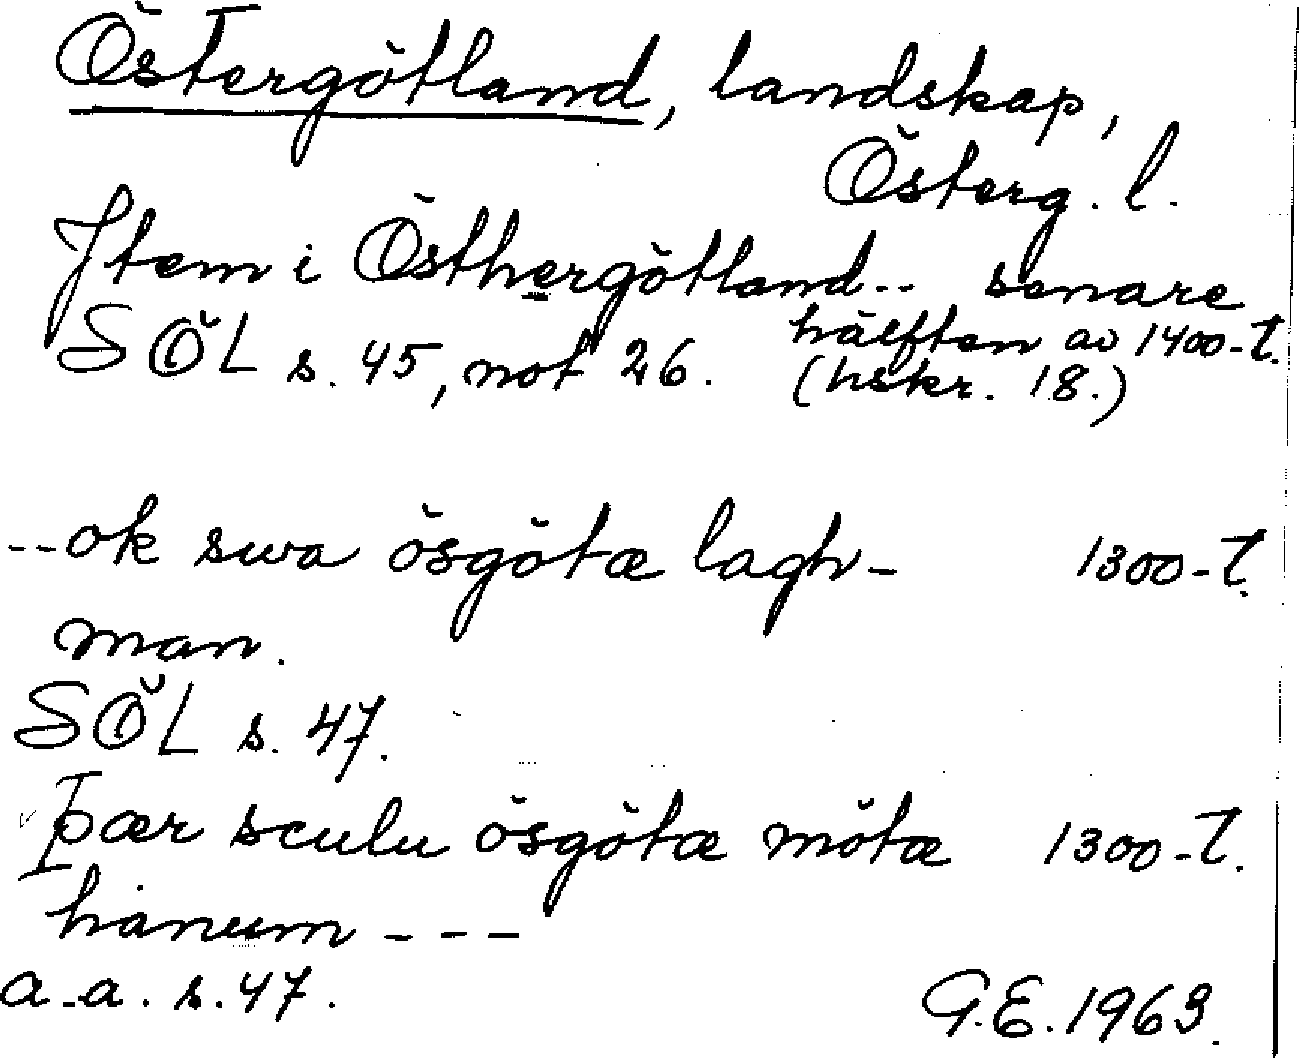 Östergötland, landskap,
Österg. l.
Jtem i Östhergötland.. senare
hälften av 1400-t.
SÖL s. 45, not 26. (hskr. 18.)
--ok swa ösgötæ lagh- 1300-t.
man.
SÖL s. 47.
Þær sculu ösgötæ mötæ 1300-t.
hanum ---
a.a. s. 47.
G.E. 1963.